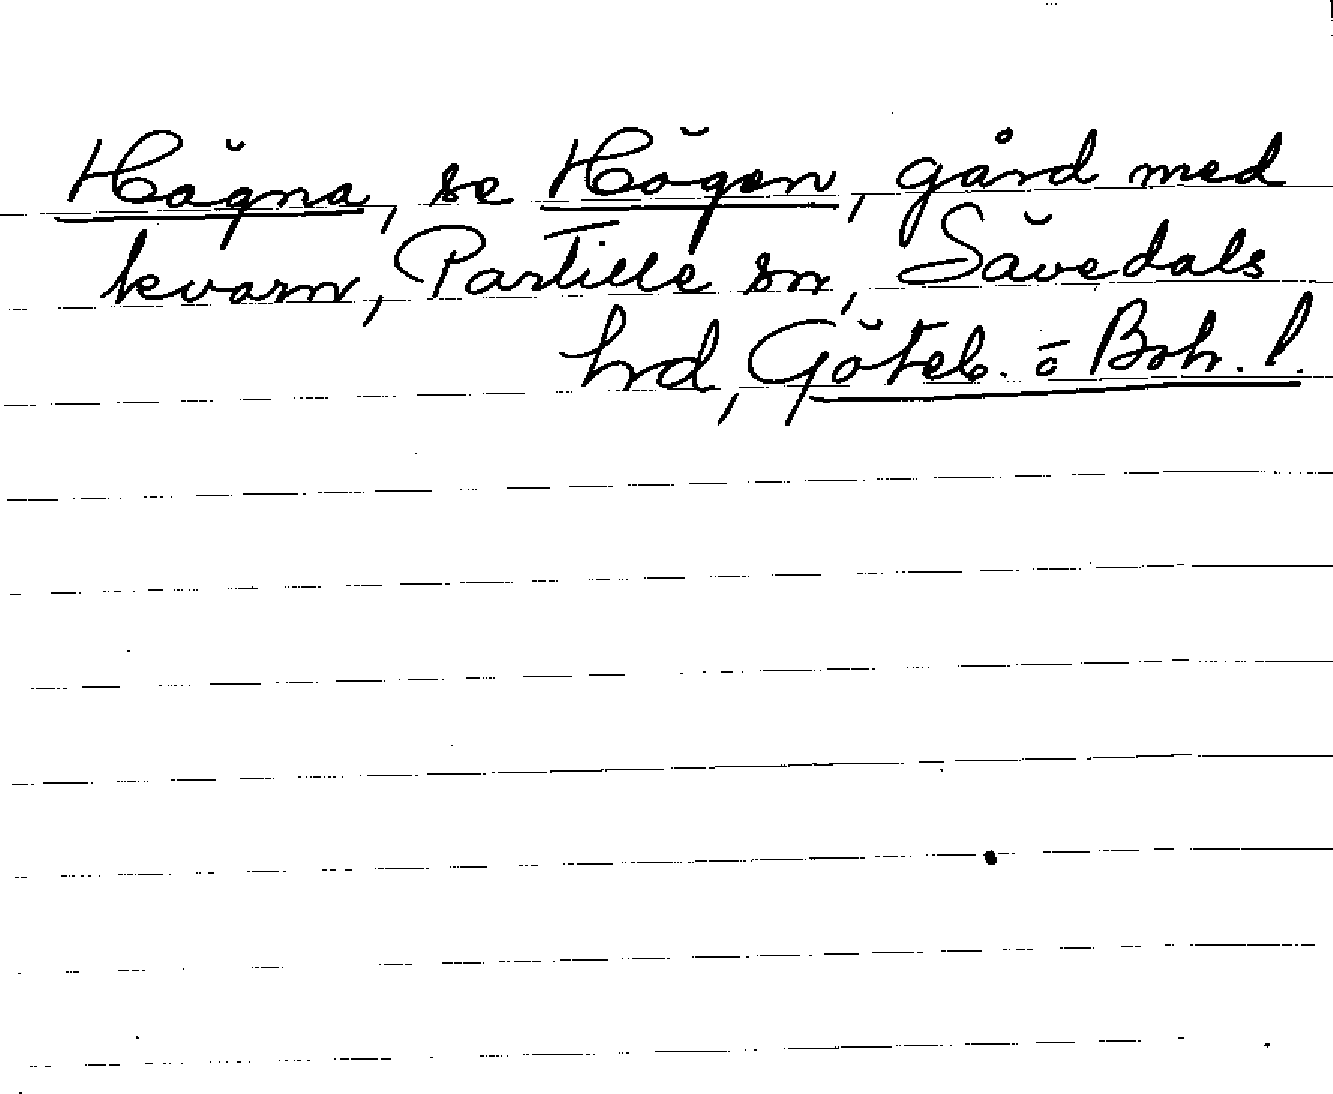 Högna, se Högen, gård med
kvarn, Partille sn, Sävedals
hd, Göteb. o Boh. l.